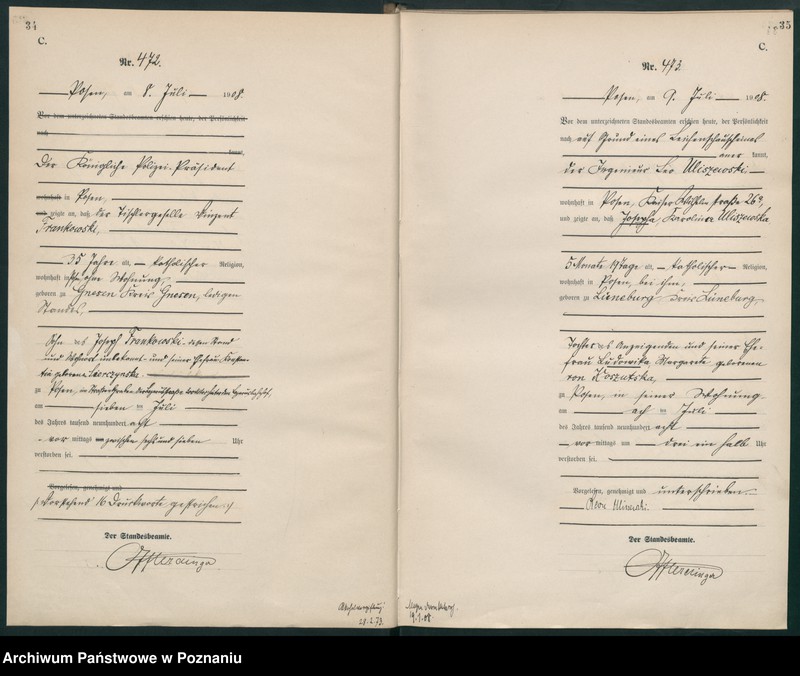 34
C.
Nr. 472.
Posen, am 8. Juli 1908.
Vor dem unterzeichneten Standesbeamten erschien heute, der Persönlichkeit
nach
kannt,
Der Königliche Polizei-Präsident
wohnhaft in Posen,
und zeigte an, daß der Tischlergeselle Vinzent
Frankowski,
35 Jahre alt, katholischer Religion,
wohnhaft in ohne Wohnung,
geboren zu Gnesen Kreis Gnesen, ledigen
Standes,
Sohn des Joseph Frankowski, dessen Stand
und Wohnort unbekannt und seiner Ehefrau
geborene
zu Posen, im
am sieben ten Juli
des Jahres tausend neunhundert acht
vor mittags zwischen sechs und sieben Uhr
verstorben sei.
Vorgelesen, genehmigt und
Vorstehend 16 Druckworte gestrichen
Der Standesbeamte.
28.2.73.
35
C.
Nr. 473.
Posen, am 9. Juli 1908.
Vor dem unterzeichneten Standesbeamten erschien heute, der Persönlichkeit
nach auf Grund eines Leichenschauscheines
aner kannt,
der Ingenieur Leo Uliszewski
wohnhaft in Posen, Kaiser Wilhelmstraße
und zeigte an, daß Josepha, Karolina Uliszewska
5 Monate Tage alt, katholischer Religion,
wohnhaft in Posen, bei ihm,
geboren zu Lüneburg Kreis Lüneburg,
Tochter des Anzeigenden und seiner Ehe-
frau Ludowika, Margarete geborenen
von Koszutska,
zu Posen, in seiner Wohnung
am acht ten Juli
des Jahres tausend neunhundert acht
vor mittags um drei ein halb Uhr
verstorben sei.
Vorgelesen, genehmigt und unterschrieben
Der Standesbeamte.
Archiwum Państwowe w Poznaniu